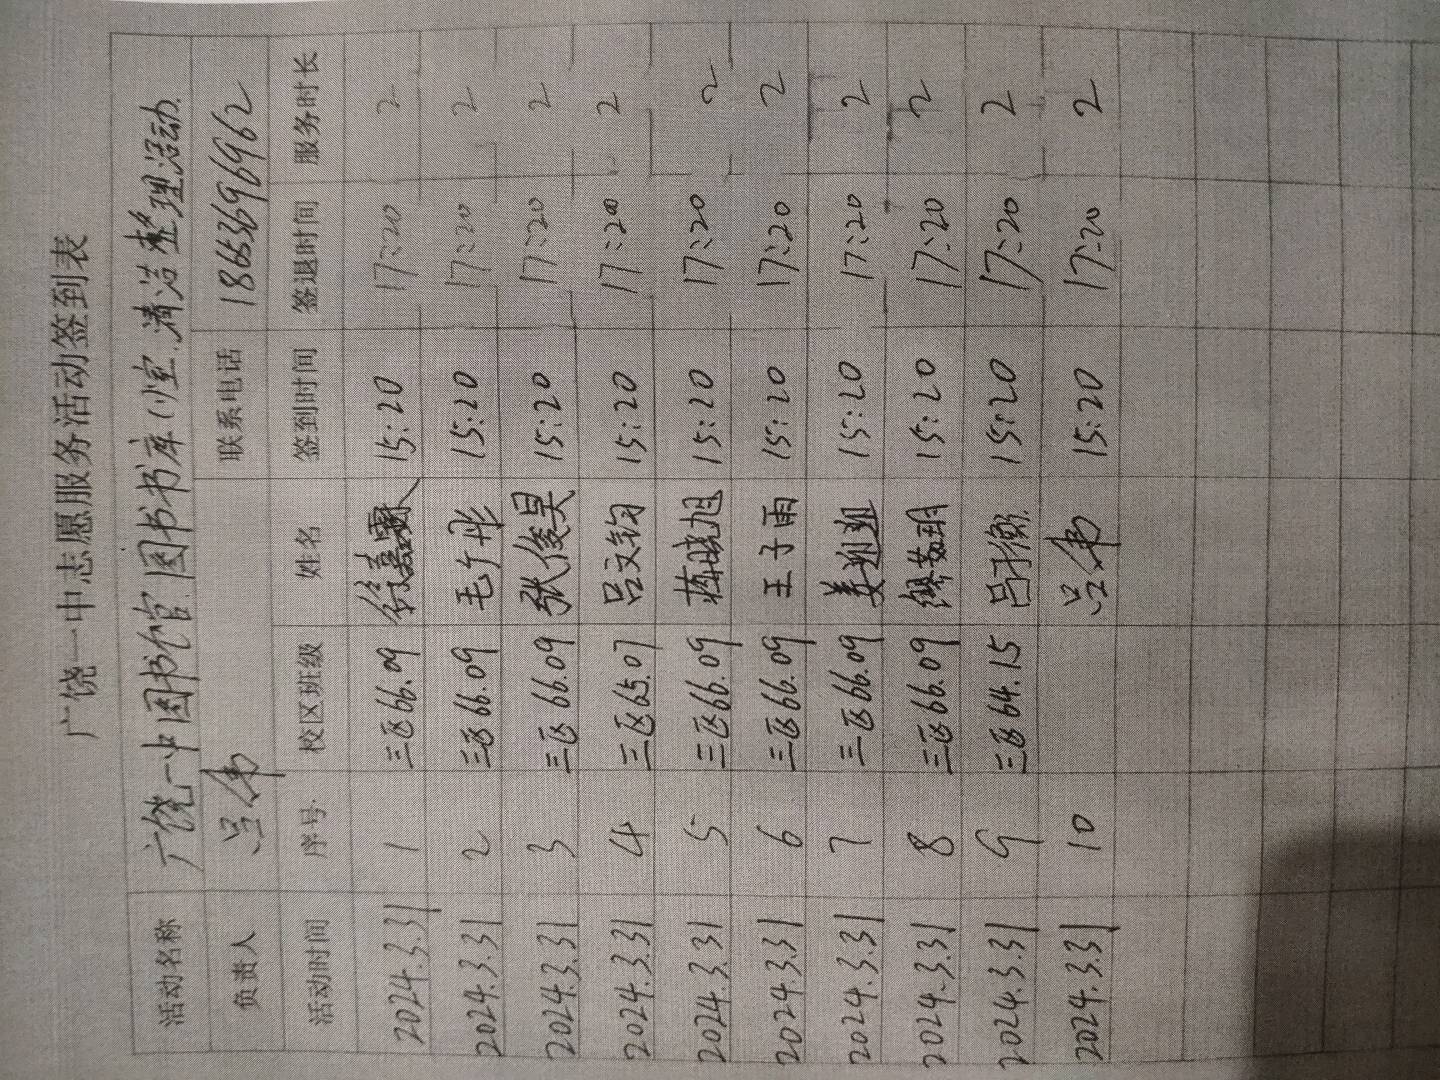 广饶一中志愿服务活动签到表
活动名称 广饶一中图书馆、图书书库(室)清洁整理活动
负责人 联系电话 18653696962
活动时间 序号 校区班级 姓名 签到时间 签退时间 服务时长
2024.3.31 1 三区66.09 15:20 17:20 2
2024.3.31 2 三区66.09 毛于彤 15:20 17:20 2
2024.3.31 3 三区66.09 张俊昊 15:20 17:20 2
2024.3.31 4 三区65.07 吕文钧 15:20 17:20 2
2024.3.31 5 三区66.09 晓旭 15:20 17:20 2
2024.3.31 6 三区66.09 王子雨 15:20 17:20 2
2024.3.31 7 三区66.09 姜 15:20 17:20 2
2024.3.31 8 三区66.09 15:20 17:20 2
2024.3.31 9 三区64.15 吕 15:20 17:20 2
2024.3.31 10 15:20 17:20 2